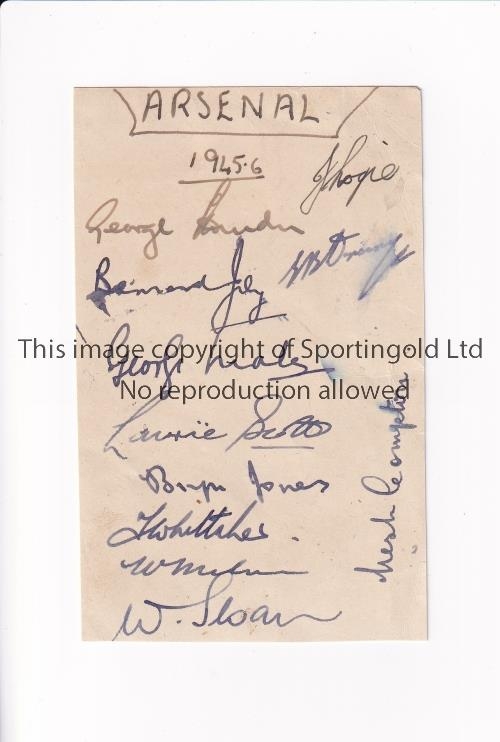 ARSENAL
1945·6
J Logie
George
Bernard Joy
This image copyright of Sportingold Ltd
George Male
No reproduction allowed
Laurie Scott
Bryn Jones
T Whittaker
W Milne
W. Sloan
Leslie Compton